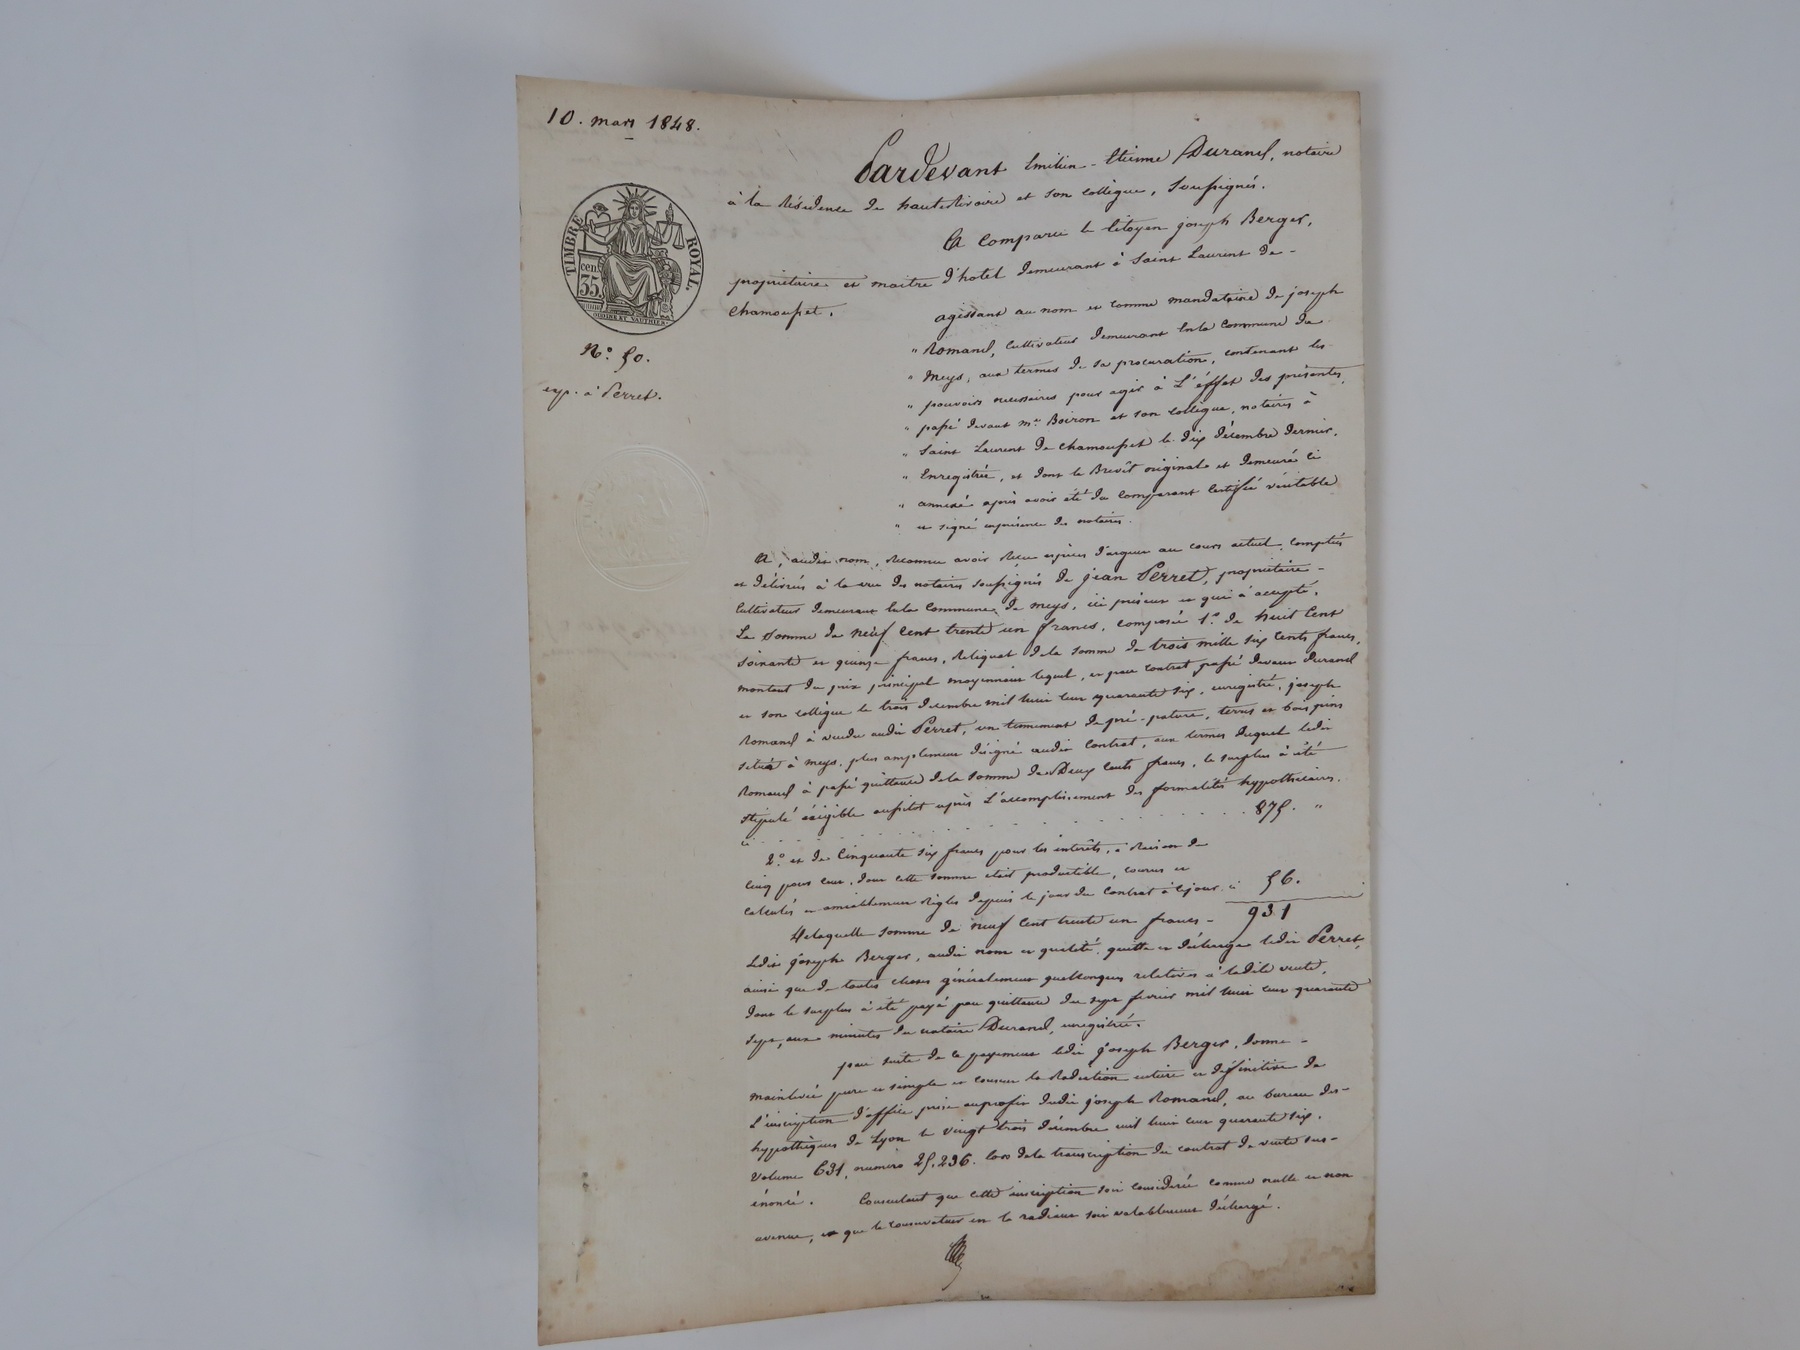 10. mars 1848.
TIMBRE ROYAL.
cen.
35.
N.o 50.
exp. à Perret.
Pardevant Emilien-Etienne Durand, notaire
à la Résidence de hauterivoire et son collègue, soussignés.
A Comparu le Citoyen joseph Berger,
propriétaire et maitre d'hotel demeurant à Saint Laurent de-
Chamousset.
agissant au nom et comme mandataire de joseph
" Romand, Cultivateur demeurant en la Commune de
" Meys, aux termes de sa procuration, contenant les
" pouvoirs necessaires pour agir à L'éffet des présentes,
" passé devant me. Boiron et son collègue, notaires à
" Saint Laurent de Chamousset le dix décembre dernier.
" Enregistrée, et dont le Brevêt original et demeuré ci
" annexé après avoir été du comparant Certifié véritable
" et signé en présence des notaires.
A, audit nom, Reconnu avoir Reçu espèces d'argent au cours actuel, comptés
et délivrés à la vue des notaires soussignés de jean Perret, propriétaire-
Cultivateur demeurant en la Commune de meys, ici présent et qui à accepté,
La Somme de neuf Cent trente un francs, composée 1.o de huit Cent
soixante et quinze francs, Reliquat de la somme de trois mille six Cents francs,
montant du prix principal moyennant lequel, et par contrat passé devant Durand
et son collègue le trois décembre mil huit cent quarante six, enregistré, joseph
Romand à vendu audit Perret, un tennement de pré-pature, terres et bois pins
situé à meys, plus amplement désigné audit contrat, aux termes duquel ledit
Romand à passé quittance de la somme de Deux Cents francs, le surplus à été
stipulé éxigible aussitot après L'accomplissement des formalités hypothécaires.
ci . . . . . . . . . . . . . . . 875. "
2.o et de Cinquante six francs pour les intérêts, à Raison de
Cinq pour cent, dont cette somme etait productible, courus et
calculés et amiablement Réglés depuis le jour du Contrat à ce jour. ci 56.
931
Delaquelle somme de neuf Cent trente un francs-
Ledit joseph Berger, audit nom et qualité, quitte et décharge ledit Perret,
ainsi que de toutes choses généralement quelconques relatives à ladite vente,
dont le surplus à été payé par quittance du sept fevrier mil huit cent quarante
sept, aux minutes du notaire Durand, enregistrée.
par suite de ce payement ledit joseph Berger, donne-
mainlevée pure et simple et consent la Radiation entière et définitive de
L'inscription d'office prise au profit dudit joseph Romand, au bureau des-
hypothèques de Lyon le vingt trois décembre mil huit cent quarante six.
Volume 631, numero 25,236. lors de la transcription du contrat de vente sus-
énoncé. Consentant que cette inscription soit considerée comme nulle et non
avenue, et que le conservateur en la radiant soit valablement déchargé.